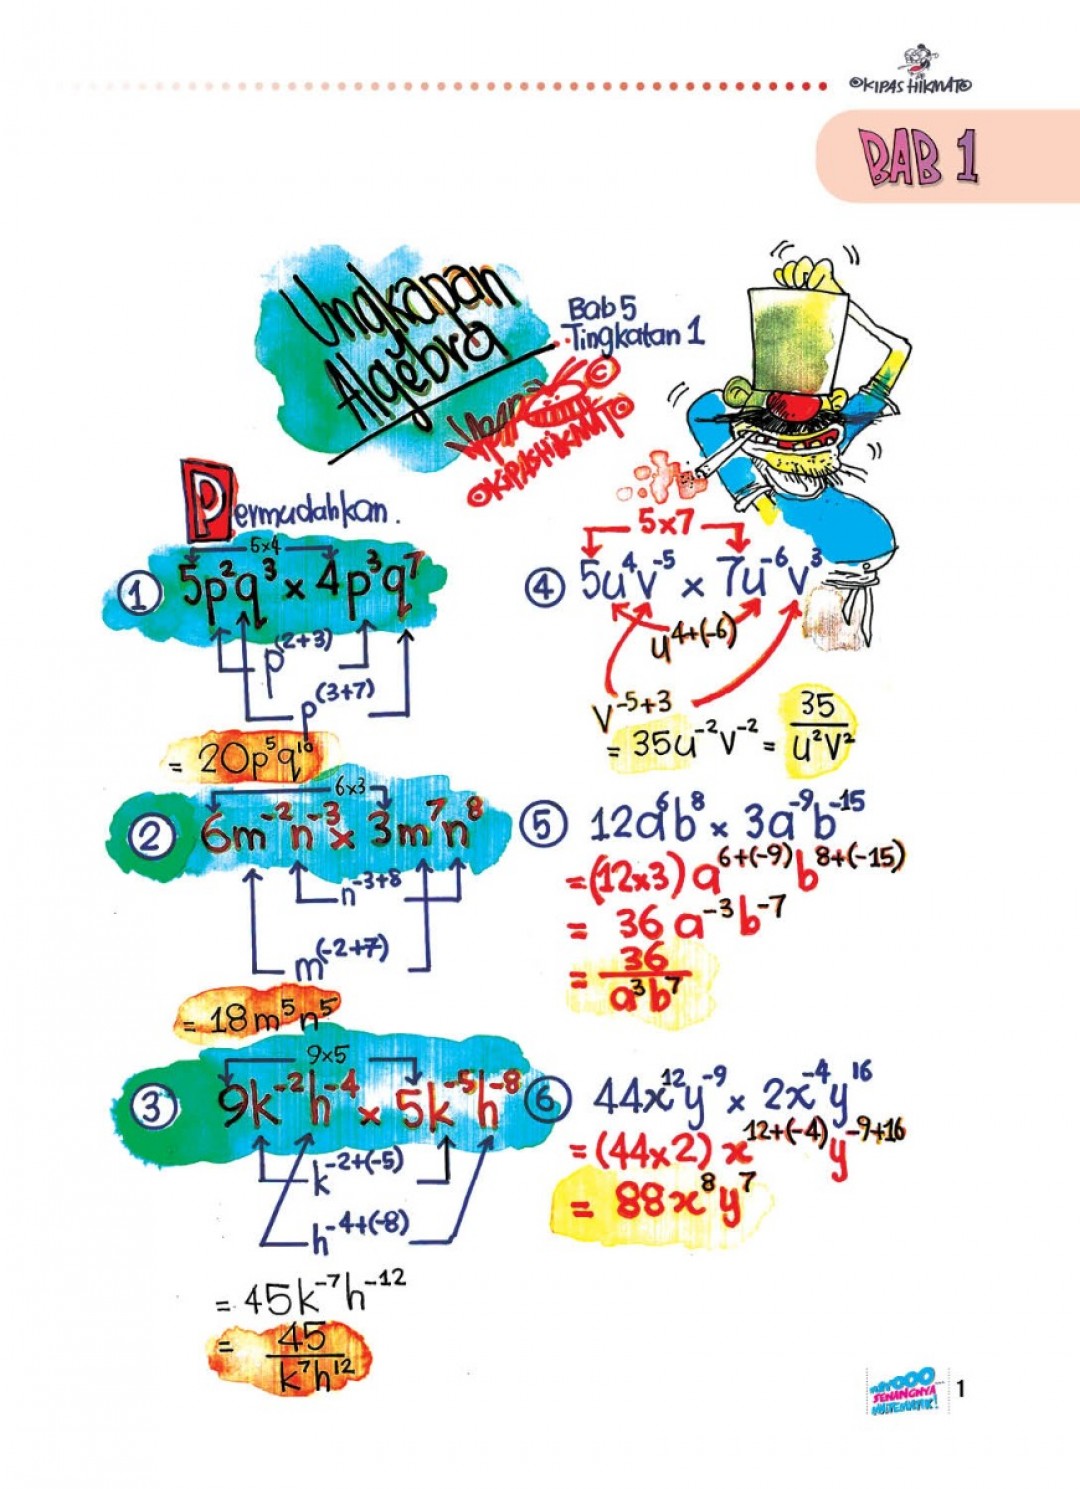 ©KIPAS HIKMATO
BAB 1
Ungkapan
Algebra
Bab 5
Tingkatan 1
©
©KIPASHIKMATO
Permudahkan.
5x4
① 5p²q³ × 4p³q⁷
p⁽²⁺³⁾
p⁽³⁺⁷⁾
= 20p⁵q¹⁰
6x3
② 6m⁻²n⁻³ × 3m⁷n⁸
n⁻³⁺⁸
m⁽⁻²⁺⁷⁾
= 18m⁵n⁵
9x5
③ 9k⁻²h⁻⁴ × 5k⁻⁵h⁻⁸
k⁻²⁺⁽⁻⁵⁾
h⁻⁴⁺⁽⁻⁸⁾
= 45k⁻⁷h⁻¹²
= 45
k⁷h¹²
5x7
④ 5u⁴v⁻⁵ × 7u⁻⁶v³
u⁴⁺⁽⁻⁶⁾
v⁻⁵⁺³
= 35u⁻²v⁻² = 35
u²v²
⑤ 12a⁶b⁸ × 3a⁻⁹b⁻¹⁵
= (12×3) a⁶⁺⁽⁻⁹⁾ b⁸⁺⁽⁻¹⁵⁾
= 36 a⁻³b⁻⁷
= 36
a³b⁷
⑥ 44x¹²y⁻⁹ × 2x⁻⁴y¹⁶
= (44×2) x¹²⁺⁽⁻⁴⁾y⁻⁹⁺¹⁶
= 88x⁸y⁷
SENANGNYA
MATEMATIK!
1